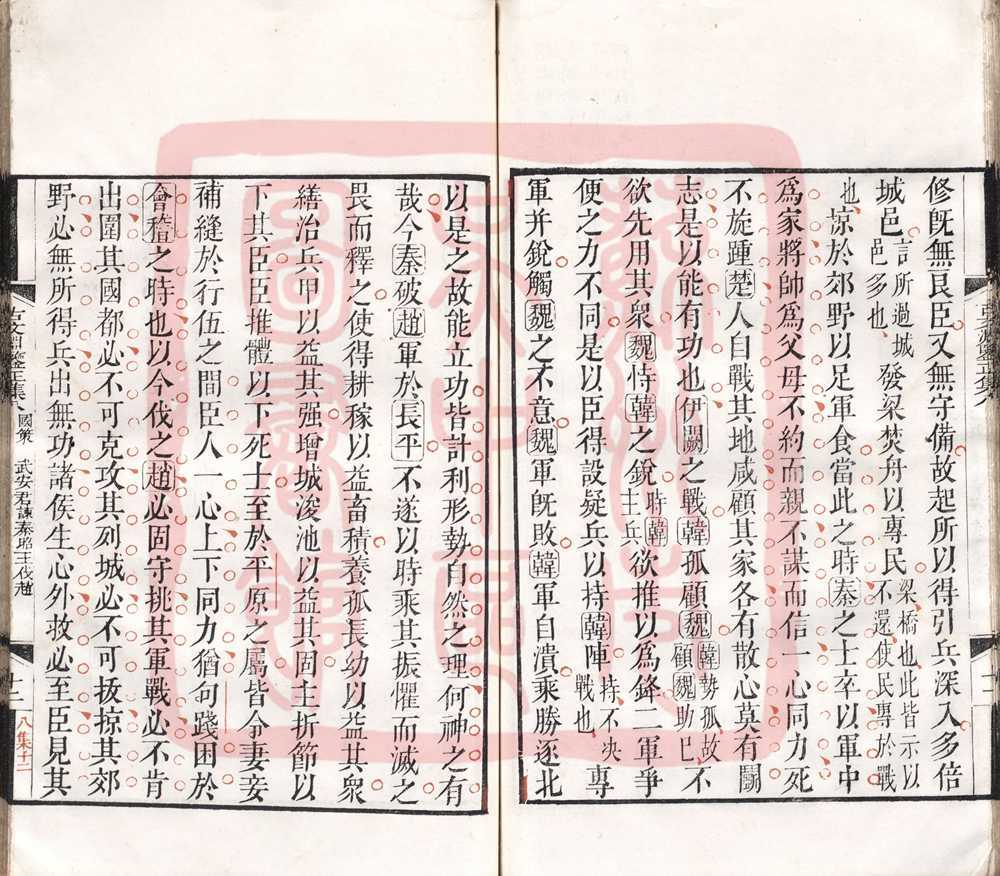 修既無良臣又無守備故起所以得引兵深入多倍
城邑言所過城邑多也發梁焚舟以專民梁橋也此皆示以不還使民專於戰
也掠於郊野以足軍食當此之時秦之士卒以軍中
爲家將帥爲父母不約而親不謀而信一心同力死
不旋踵楚人自戰其地咸顧其家各有散心莫有鬭
志是以能有功也伊闕之戰韓孤顧魏韓勢孤故顧魏助已不
欲先用其衆魏恃韓之銳時韓主兵欲推以爲鋒二軍爭
便之力不同是以臣得設疑兵以待韓陣持不決戰也專
軍并銳觸魏之不意魏軍既敗韓軍自潰乘勝逐北
以是之故能立功皆計利形勢自然之理何神之有
哉今秦破趙軍於長平不遂以時乘其振懼而滅之
畏而釋之使得耕稼以益畜積養孤長幼以益其衆
繕治兵甲以益其强增城浚池以益其固主折節以
下其臣臣推體以下死士至於平原之屬皆令妻妾
補縫於行伍之間臣人一心上下同力猶句踐困於
會稽之時也以今伐之趙必固守挑其軍戰必不肯
出圍其國都必不可克攻其列城必不可拔掠其郊
野必無所得兵出無功諸侯生心外救必至臣見其
正集八 國策 武安君諫秦昭王伐趙 十二 八集十二